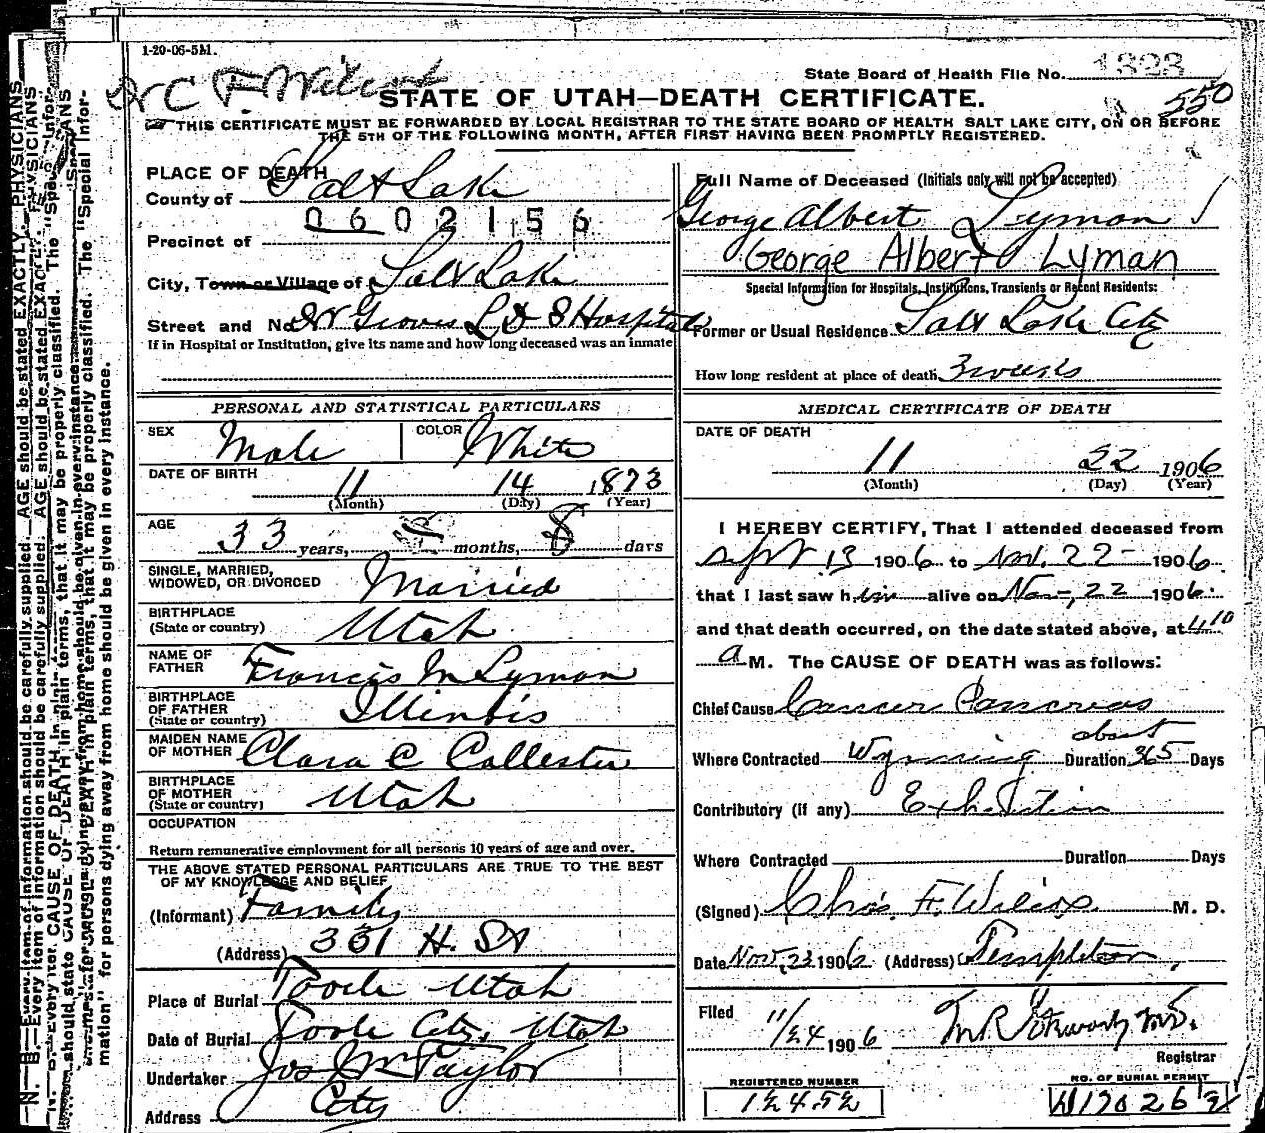 1-20-06-5M.
State Board of Health File No. 1323
STATE OF UTAH—DEATH CERTIFICATE.
550
THIS CERTIFICATE MUST BE FORWARDED BY LOCAL REGISTRAR TO THE STATE BOARD OF HEALTH SALT LAKE CITY, ON OR BEFORE
THE 5TH OF THE FOLLOWING MONTH, AFTER FIRST HAVING BEEN PROMPTLY REGISTERED.
PLACE OF DEATH
County of Salt Lake
0602156
Precinct of
City, Town or Village of Salt Lake
Street and No. Dr Groves L D S Hospital
If in Hospital or Institution, give its name and how long deceased was an inmate
PERSONAL AND STATISTICAL PARTICULARS
SEX Male COLOR White
DATE OF BIRTH 11 14 1873
(Month) (Day) (Year)
AGE 33 years, months, 8 days
SINGLE, MARRIED,
WIDOWED, OR DIVORCED Married
BIRTHPLACE
(State or country) Utah
NAME OF
FATHER Francis M Lyman
BIRTHPLACE
OF FATHER
(State or country) Illinois
MAIDEN NAME
OF MOTHER Clara C Callester
BIRTHPLACE
OF MOTHER
(State or country) Utah
OCCUPATION
Return remunerative employment for all persons 10 years of age and over.
THE ABOVE STATED PERSONAL PARTICULARS ARE TRUE TO THE BEST
OF MY KNOWLEDGE AND BELIEF
(Informant) Family
(Address) 351 H. St
Place of Burial Tooele Utah
Date of Burial Tooele City, Utah
Undertaker Jos Wm Taylor
Address City
Full Name of Deceased (Initials only will not be accepted)
George Albert Lyman
George Albert Lyman
Special Information for Hospitals, Institutions, Transients or Recent Residents:
Former or Usual Residence Salt Lake City
How long resident at place of death 3 weeks
MEDICAL CERTIFICATE OF DEATH
DATE OF DEATH
11 22 1906
(Month) (Day) (Year)
I HEREBY CERTIFY, That I attended deceased from
Sept 13 1906 to Nov. 22 1906
that I last saw him alive on Nov, 22 1906.
and that death occurred, on the date stated above, at 4 10
a M. The CAUSE OF DEATH was as follows:
Chief Cause Cancer Pancreas
Where Contracted Wyoming Duration about 365 Days
Contributory (if any) Exhaustion
Where Contracted Duration Days
(Signed) Chas. F. Wilcox M. D.
Date Nov, 23 1906 (Address) Templeton,
Filed 11/24 1906
Registrar
REGISTERED NUMBER
12452
NO. OF BURIAL PERMIT
N. B.—Every item of information should be carefully supplied. AGE should be stated EXACTLY. PHYSICIANS
should state CAUSE OF DEATH in plain terms, that it may be properly classified. The "Special Infor-
mation" for persons dying away from home should be given in every instance.